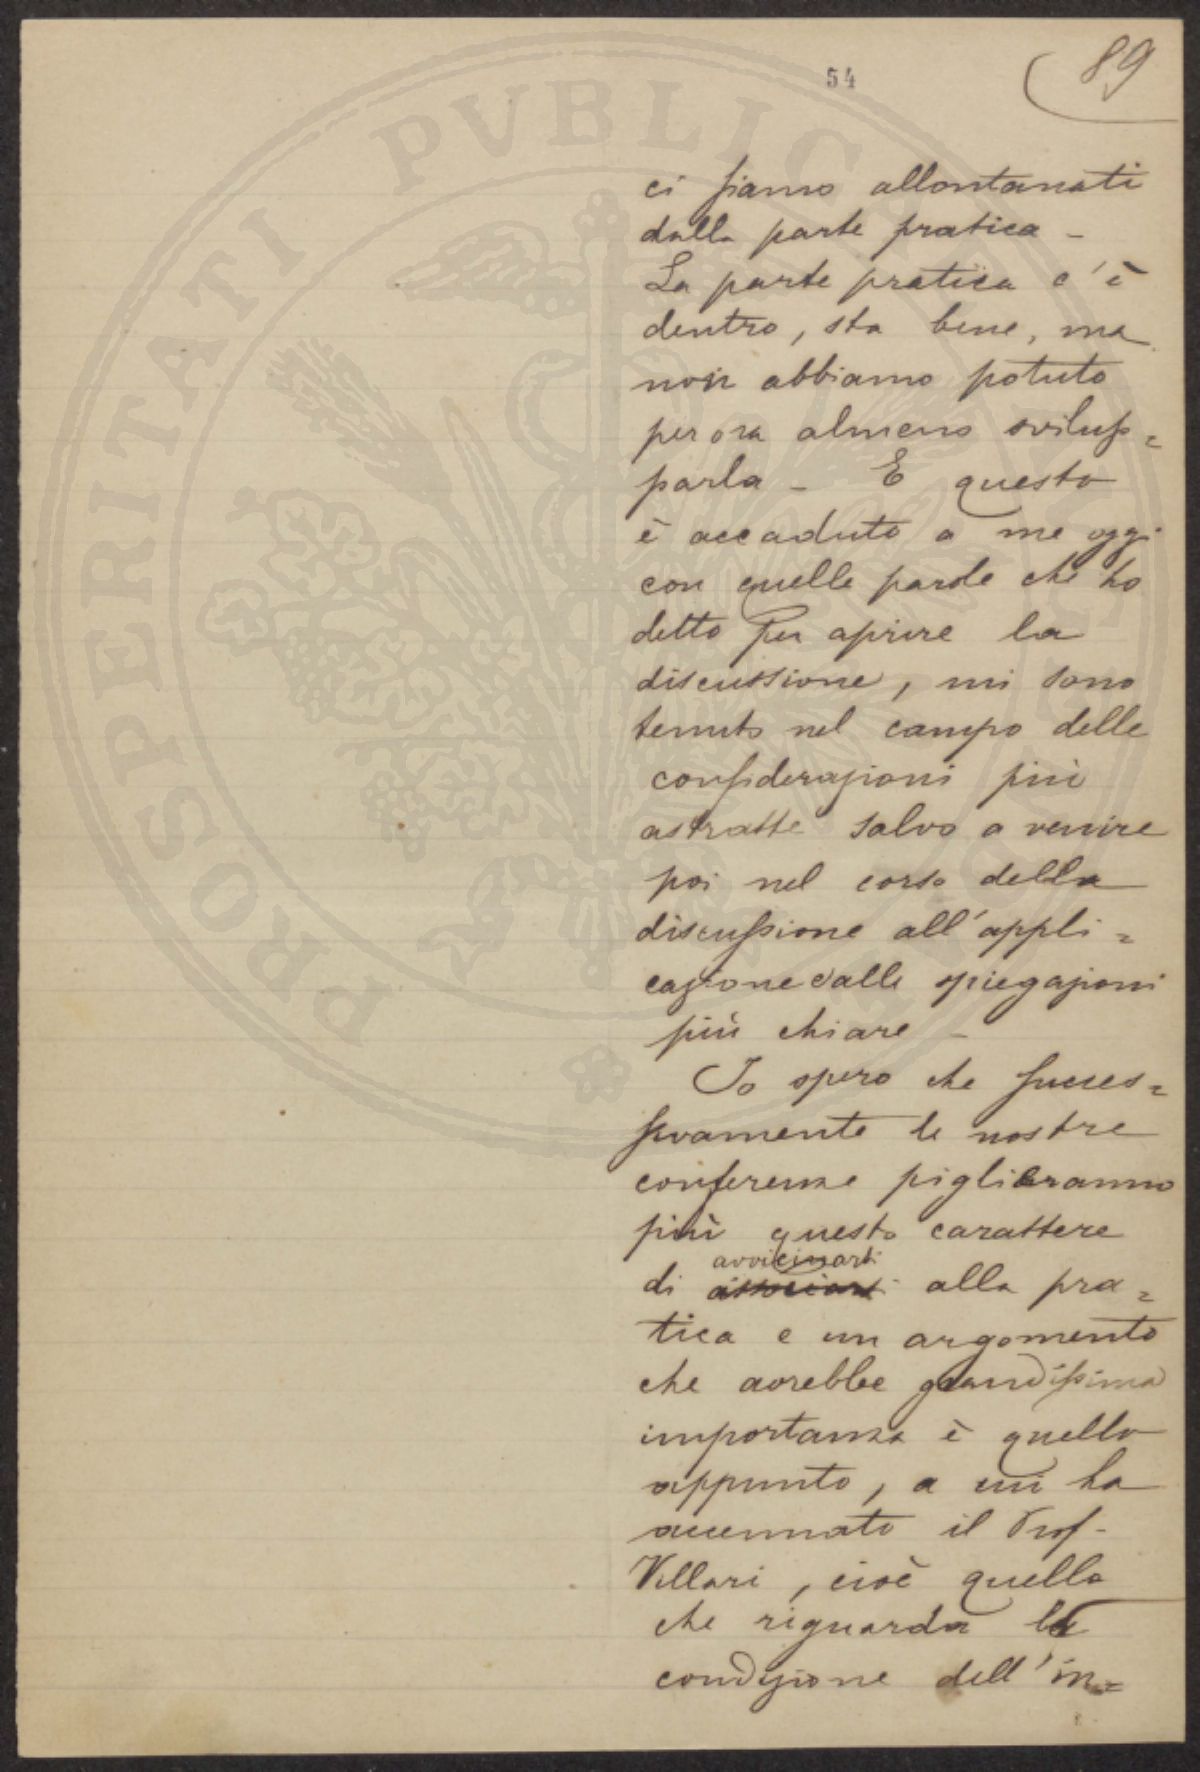 54
89
PROSPERITATI PUBLICAE
ci siamo allontanati
dalla parte pratica –
La parte pratica c'è
dentro, sta bene, ma
non abbiamo potuto
per ora almeno svilup=
parla – E questo
è accaduto a me oggi
con quelle parole che ho
detto per aprire la
discussione, mi sono
tenuto nel campo delle
considerazioni più
astratte salvo a venire
poi nel corso della
discussione all'appli=
cazione dalle spiegazioni
più chiare –
Io spero che succes=
sivamente le nostre
conferenze piglieranno
più questo carattere
avvicinarsi
di associarsi alla pra=
tica e un argomento
che avrebbe grandissima
importanza è quello
appunto, a cui ha
accennato il Prof.
Villari, cioè quello
che riguarda la
condizione dell'in=